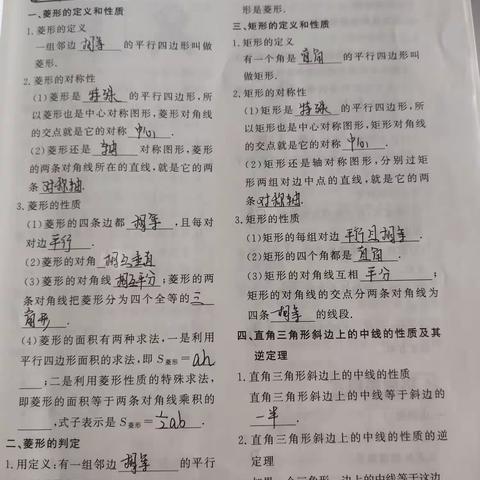 一、菱形的定义和性质
1.菱形的定义
一组邻边 相等 的平行四边形叫做
菱形.
2.菱形的对称性
(1)菱形是 特殊 的平行四边形,所
以菱形也是中心对称图形,菱形对角线
的交点就是它的对称 中心 .
(2)菱形还是 轴 对称图形,菱形
的两条对角线所在的直线,就是它的两
条 对称轴.
3.菱形的性质
(1)菱形的四条边都 相等 ,且每对
对边 平行 .
(2)菱形的对角 相互垂直
(3)菱形的对角线 相互平分 ;菱形的两
条对角线把菱形分为四个全等的 三
角形 .
(4)菱形的面积有两种求法,一是利用
平行四边形面积的求法,即 S菱形= ah
;二是利用菱形性质的特殊求法,
即菱形的面积等于两条对角线乘积的
,式子表示是 S菱形= ½ab .
二、菱形的判定
1.用定义:有一组邻边 相等 的平行
形是菱形.
三、矩形的定义和性质
1.矩形的定义
有一个角是 直角 的平行四边形叫
做矩形.
2.矩形的对称性
(1)矩形是 特殊 的平行四边形,所
以矩形也是中心对称图形,矩形对角线
的交点就是它的对称 中心 .
(2)矩形还是轴对称图形,分别过矩
形两组对边中点的直线,就是它的两
条 对称轴.
3.矩形的性质
(1)矩形的每组对边 平行且相等 .
(2)矩形的四个角都是 直角 .
(3)矩形的对角线互相 平分 ;
矩形的对角线的交点分两条对角线为
四条 相等 的线段.
四、直角三角形斜边上的中线的性质及其
逆定理
1.直角三角形斜边上的中线的性质
直角三角形斜边上的中线等于斜边的
一半 .
2.直角三角形斜边上的中线的性质的逆
定理
如果一个三角形一边上的中线等于这边